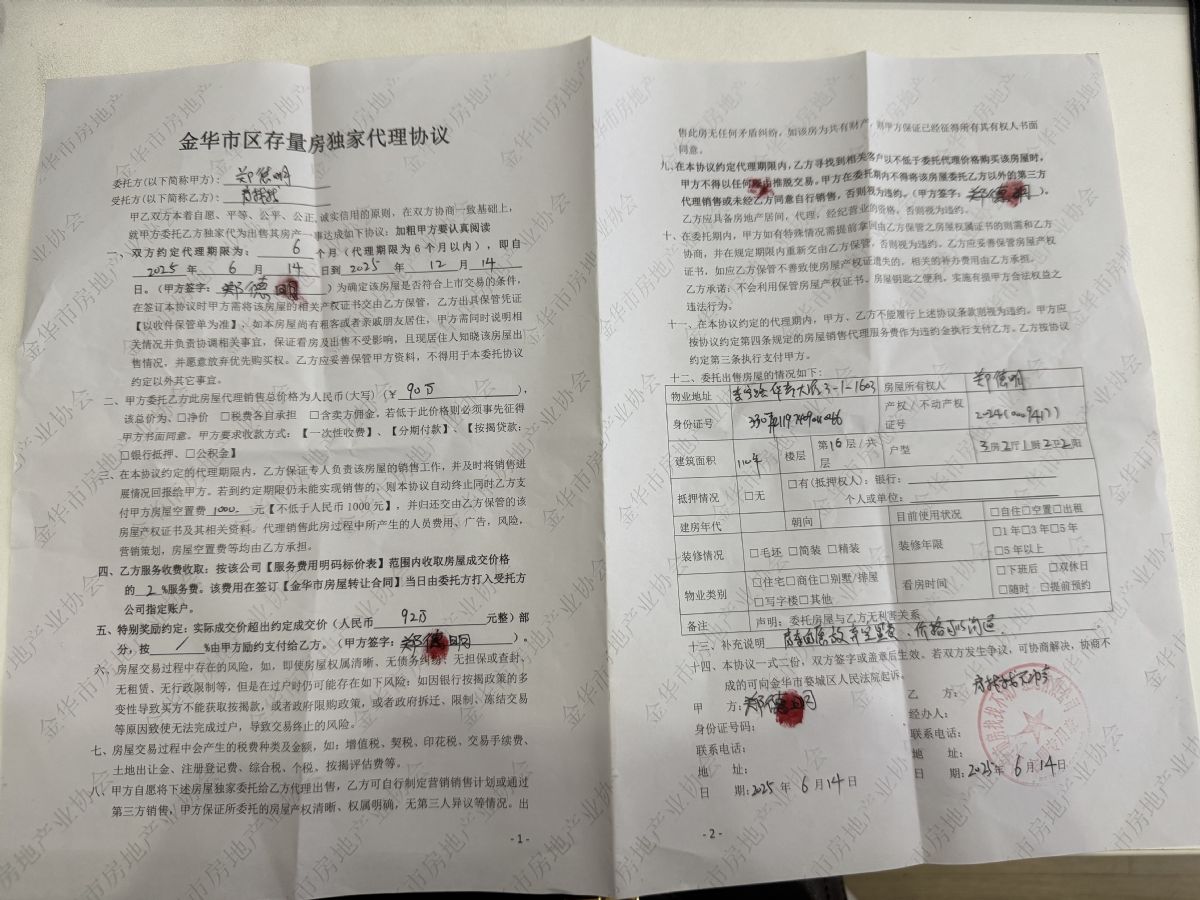 金华市区存量房独家代理协议
委托方(以下简称甲方)： 郑德明
受托方(以下简称乙方)： 房找找
甲乙双方本着自愿、平等、公平、公正、诚实信用的原则，在双方协商一致基础上，
就甲方委托乙方独家代为出售其房产一事达成如下协议：加粗甲方要认真阅读
一、双方约定代理期限为： 6 个月（代理期限为6个月以内），即自
2025 年 6 月 14 日到 2025 年 12 月 14
日。（甲方签字： 郑德明 ）为确定该房屋是否符合上市交易的条件，
在签订本协议时甲方需将该房屋的相关产权证书交由乙方保管，乙方出具保管凭证
【以收件保管单为准】、如本房屋尚有租客或者亲戚朋友居住，甲方需同时说明相
关情况并负责协调相关事宜，保证看房及出售不受影响，且现居住人知晓该房屋出
售情况，并愿意放弃优先购买权。乙方应妥善保管甲方资料，不得用于本委托协议
约定以外其它事宜。
二、甲方委托乙方此房屋代理销售总价格为人民币(大写)（￥ 90万 ），
该总价为、□净价 □税费各自承担 □含卖方佣金，若低于此价格则必须事先征得
甲方书面同意。甲方要求收款方式：【一次性收费】、【分期付款】、【按揭贷款：
□银行抵押、□公积金】
三、在本协议约定的代理期限内，乙方保证专人负责该房屋的销售工作，并及时将销售进
展情况回报给甲方。若到约定期限仍未能实现销售的，则本协议自动终止同时乙方支
付甲方房屋空置费 1000 元【不低于人民币1000元】，并归还交由乙方保管的该
房屋产权证书及其相关资料。代理销售此房过程中所产生的人员费用、广告，风险，
营销策划，房屋空置费等均由乙方承担。
四、乙方服务收费收取：按该公司【服务费用明码标价表】范围内收取房屋成交价格
的 2 %服务费。该费用在签订【金华市房屋转让合同】当日由委托方打入受托方
公司指定账户。
五、特别奖励约定：实际成交价超出约定成交价（人民币 92万 元整）部
分，按 / %由甲方励约支付给乙方。（甲方签字： 郑德明 ）。
六、房屋交易过程中存在的风险，如，即使房屋权属清晰、无债务纠纷、无担保或查封，
无租赁、无行政限制等，但是在过户时仍可能存在如下风险：如因银行按揭政策的多
变性导致买方不能获取按揭款，或者政府限购政策，或者政府拆迁、限制、冻结交易
等原因致使无法完成过户，导致交易终止的风险。
七、房屋交易过程中会产生的税费种类及金额，如：增值税、契税、印花税，交易手续费、
土地出让金、注册登记费、综合税、个税、按揭评估费等。
八、甲方自愿将下述房屋独家委托给乙方代理出售，乙方可自行制定营销销售计划或通过
第三方销售，甲方保证所委托的房屋产权清晰、权属明确，无第三人异议等情况。出
- 1 -
售此房无任何矛盾纠纷，如该房为共有财产，则甲方保证已经征得所有其有权人书面
同意。
九、在本协议约定代理期限内，乙方寻找到相关客户以不低于委托代理价格购买该房屋时，
甲方不得以任何理由推脱交易。甲方在委托期内不得将该房屋委托乙方以外的第三方
代理销售或未经乙方同意自行销售，否则视为违约。（甲方签字： 郑德明 ）。
乙方应具备房地产居间，代理，经纪营业的资格，否则视为违约。
十、在委托期内，甲方如有特殊情况需提前拿回由乙方保管之房屋权属证书的则需和乙方
协商，并在规定期限内重新交由乙方保管，否则视为违约。乙方应妥善保管房屋产权
证书，如应乙方保管不善致使房屋产权证遗失的，相关的补办费用由乙方承担。
乙方承诺：不会利用保管房屋产权证书、房屋钥匙之便利，实施有损甲方合法权益之
违法行为。
十一、在本协议约定的代理期内，甲方、乙方不能履行上述协议条款则视为违约。甲方应
按协议约定第四条规定的房屋销售代理服务费作为违约金执行支付乙方。乙方按协议
约定第三条执行支付甲方。
十二、委托出售房屋的情况如下：
物业地址 大厦3-1-1603 房屋所有权人 郑德明
身份证号 产权/不动产权证号
建筑面积 楼层 第16层/共 层 户型 3房2厅1厨2卫2阳
抵押情况 □无 □有(抵押权人)：银行：
个人或单位：
建房年代 朝向 目前使用状况 □自住□空置□出租
装修情况 □毛坯 □简装 □精装 装修年限 □1年□3年□5年
□5年以上
物业类别 □住宅□商住□别墅/排屋
□写字楼□其他 看房时间 □下班后 □双休日
□随时 □提前预约
备注 声明：委托房屋与乙方无利害关系
十三、补充说明 价格可以沟通
十四、本协议一式二份，双方签字或盖章后生效。若双方发生争议，可协商解决，协商不
成的可向金华市婺城区人民法院起诉。
甲 方： 郑德明
身份证号码：
联系电话：
地 址：
日 期：2025年 6 月 14 日
乙 方： 房找找
经办人：
联系电话：
地 址：
日 期：2025年 6 月 14 日
- 2 -